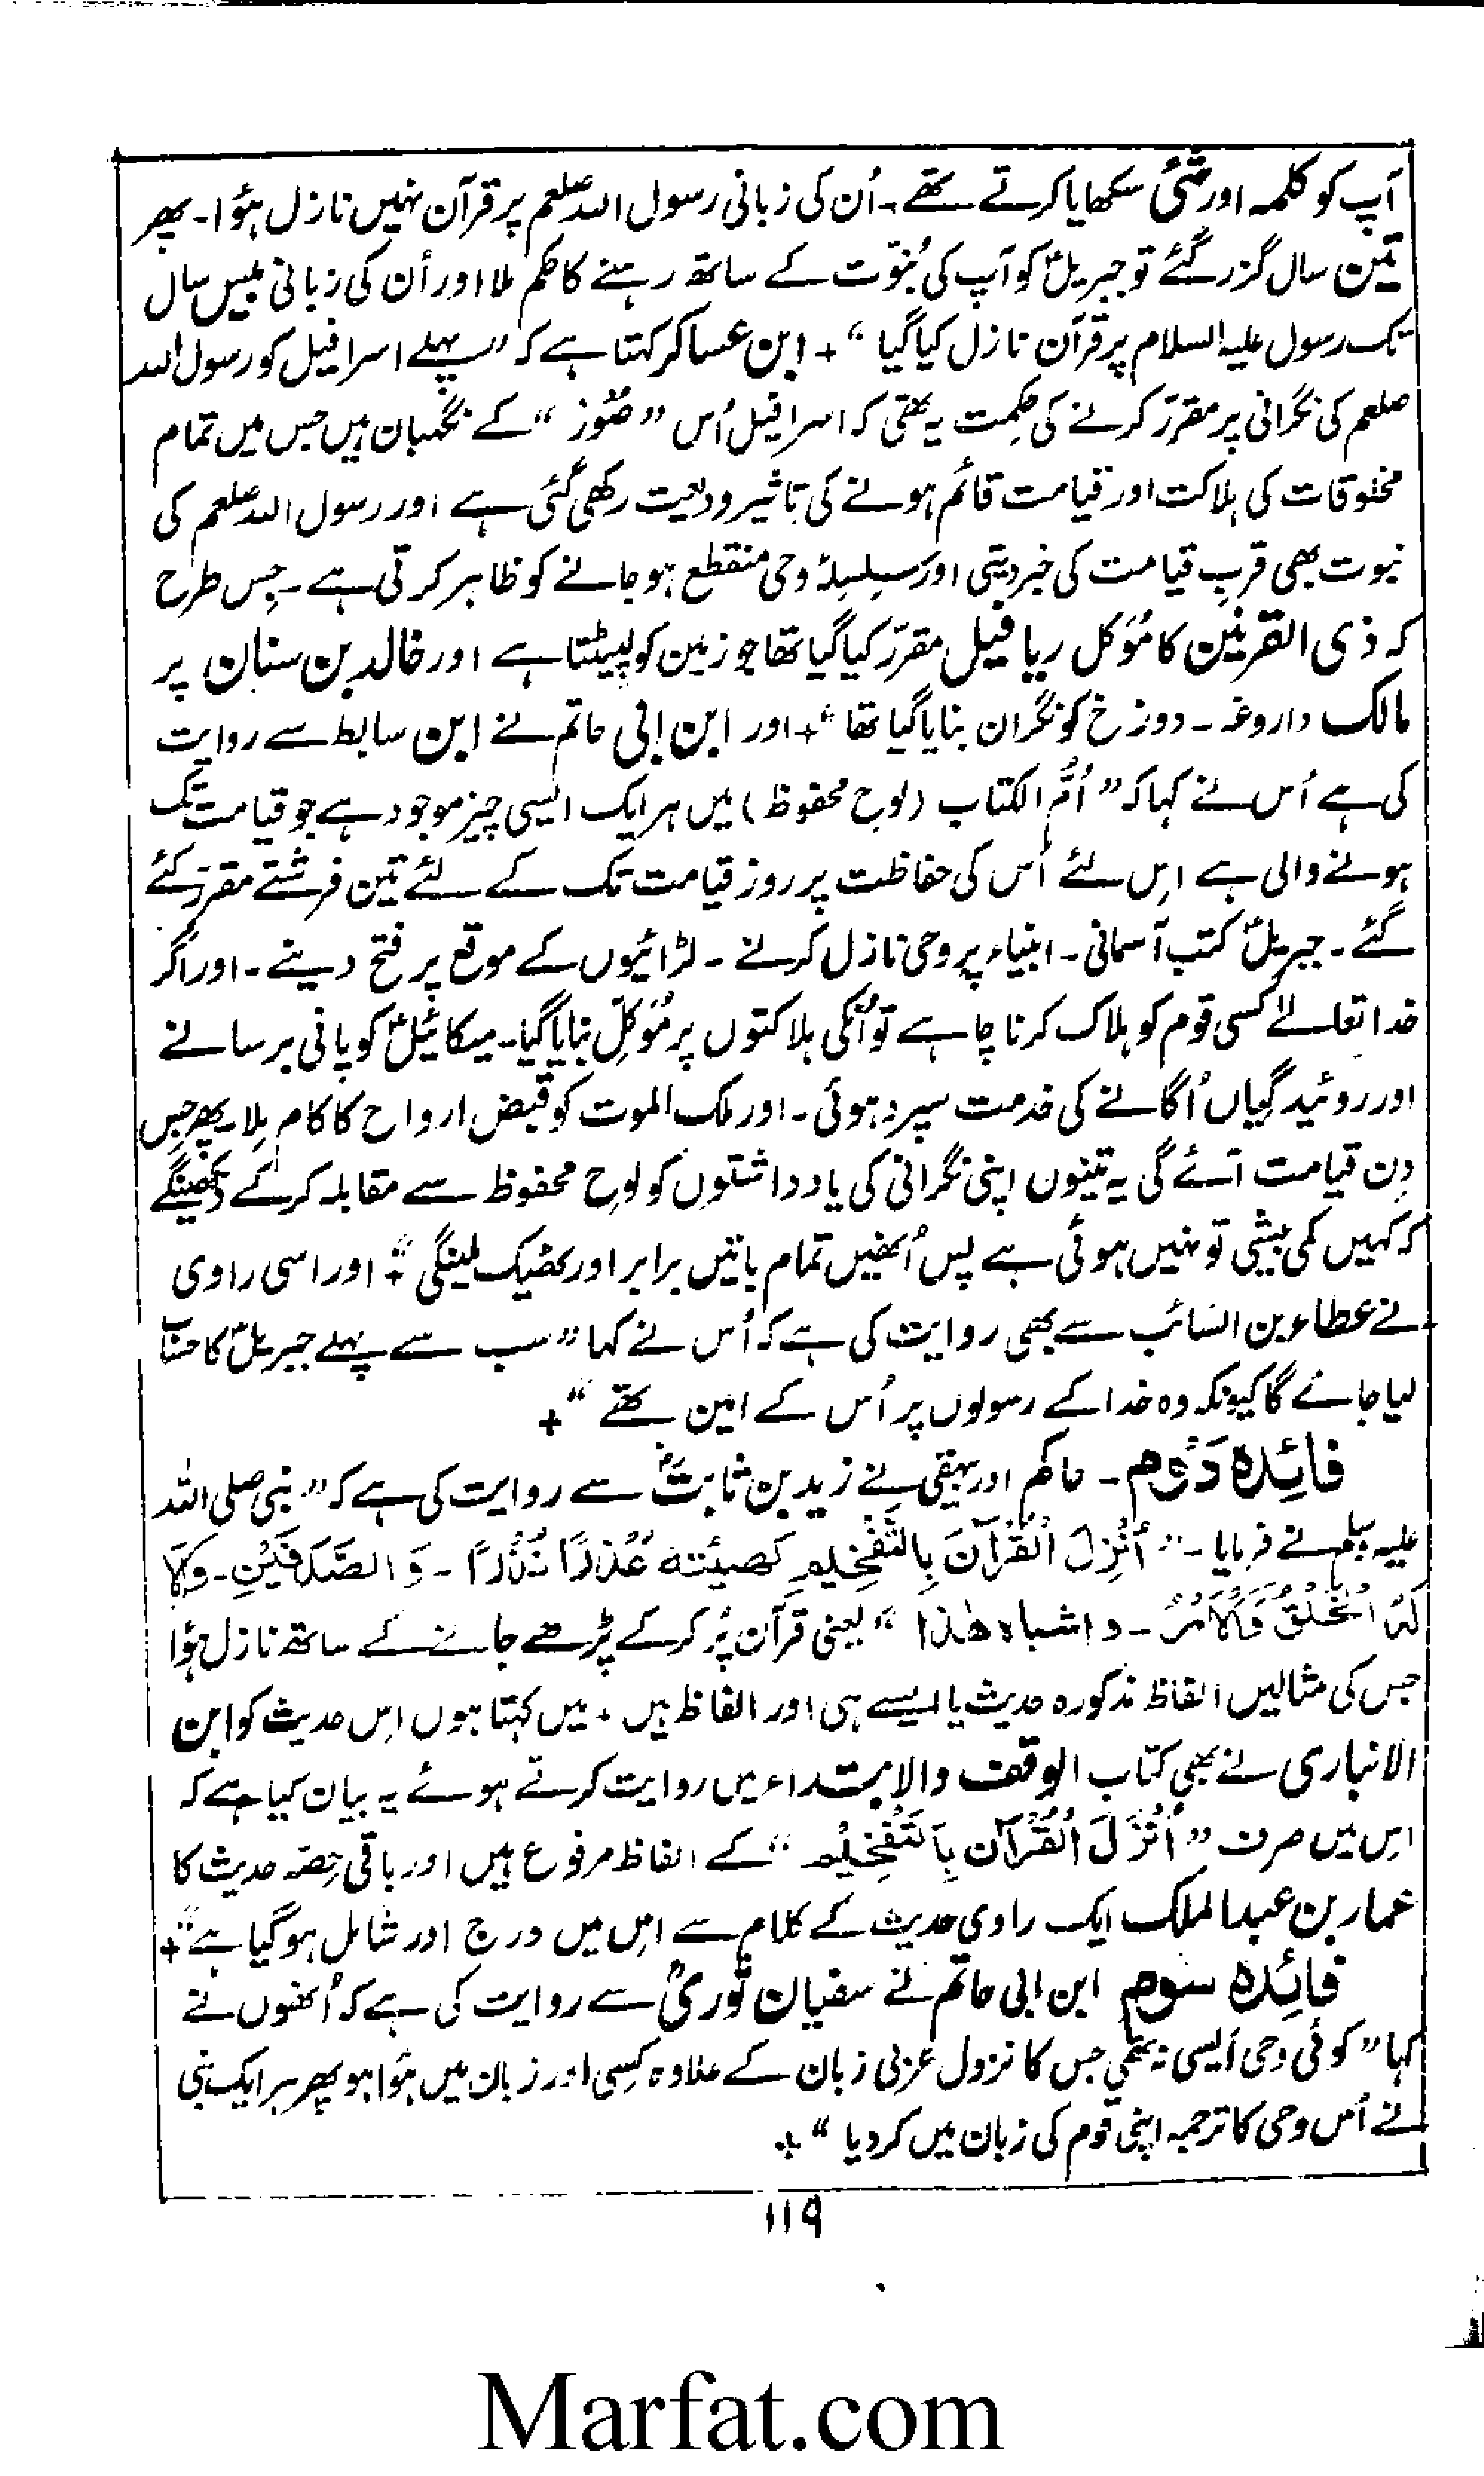 آپ کو کلمہ اور شئی سکھایا کرتے تھے۔ اُن کی زبانی رسول اللہ صلعم پر قرآن نہیں نازل ہؤا۔ پھر
تین سال گزر گئے تو جبریلؑ کو آپ کی نُبوّت کے ساتھ رہنے کا حکم ملا اور اُن کی زبانی بیس سال
تک رسول علیہ السلام پر قرآن نازل کیا گیا“ + ابن عساکر کہتا ہے کہ ”پہلے اسرافیل کو رسول اللہ
صلعم کی نگرانی پر مقرر کرنے کی حِکمت یہ تھی کہ اسرافیل اُس ”صُوْر“ کے نگہبان ہیں جس میں تمام
مخلوقات کی ہلاکت اور قیامت قائم ہونے کی تاثیر ودیعت رکھی گئی ہے اور رسول اللہ صلعم کی
نبوت بھی قربِ قیامت کی خبر دیتی اور سلسلۂ وحی منقطع ہو جانے کو ظاہر کرتی ہے۔ جس طرح
کہ ذی القرنین کا مُوَکل ریافیل مقررّ کیا گیا تھا جو زمین کو لپیٹتا ہے اور خالد بن سنان پر
مالک داروغہ۔ دوزخ کو نگران بنایا گیا تھا“ + اور ابن ابی حاتم نے ابن سابط سے روایت
کی ہے اُس نے کہا کہ ”اُمُّ الکتاب (لوح محفوظ) میں ہر ایک ایسی چیز موجود ہے جو قیامت تک
ہونے والی ہے اِس لئے اُس کی حفاظت پر روز قیامت تک کے لئے تین فرشتے مقررَ کئے
گئے۔ جبریلؑ کتب آسمانی۔ انبیاء پر وحی نازل کرنے۔ لڑائیوں کے موقع پر فتح دینے۔ اور اگر
خدا تعالےٰ کسی قوم کو ہلاک کرنا چاہے تو اُنکی ہلاکتوں پر مُوَکِّل بنایا گیا۔ میکائیلؑ کو پانی برسانے
اور روئیدگیاں اُگانے کی خدمت سپرد ہوئی۔ اور ملک الموت کو قبض ارواح کا کام ملا۔ پھر جس
دن قیامت آئے گی یہ تینوں اپنی نگرانی کی یادداشتوں کو لوح محفوظ سے مقابلہ کر کے دیکھینگے
کہ کہیں کمی بیشی تو نہیں ہوئی ہے پس اُنھیں تمام باتیں برابر اور ٹھیک ملینگی“ + اور اسی راوی
نے عطاء بن السَائب سے بھی روایت کی ہے کہ اُس نے کہا ”سب سے پہلے جبریلؑ کا حساب
لیا جائے گا کیونکہ وہ خدا کے رسولوں پر اُس کے امین تھے“ +
فائدہ دَوُم۔ حاکم اور بیہقی نے زید بن ثابتؓ سے روایت کی ہے کہ ”نبی صلی اللہ
علیہ وسلم نے فرمایا۔ ”اُنْزِلَ الْقُرْآنَ بِالتَّفْخِیْمِ کھیئتہ عُذْرًا نُذْرًا۔ وَالصَّدَفَیْنِ۔ وَلَا
لَہُ الْخَلْقُ وَالْاَمْرُ۔ واشباہ ھٰذا“ یعنی قرآن پُر کر کے پڑھے جانے کے ساتھ نازل ہؤا
جس کی مثالیں الفاظ مذکورہ حدیث یا ایسے ہی اور الفاظ ہیں + میں کہتا ہوں اِس حدیث کو ابن
الانباری نے بھی کتاب الوقف والابتداء میں روایت کرتے ہوئے یہ بیان کیا ہے کہ
اِس میں صرف ”اُنْزِلَ الْقُرْآن بِالتَّفْخِیْم“ کے الفاظ مرفوع ہیں اور باقی حِصّہ حدیث کا
عمار بن عبد الملک ایک راوی حدیث کے کلام سے اِس میں درج اور شامل ہو گیا ہے“ +
فائدہ سوم ابن ابی حاتم نے سفیان ثوریؒ سے روایت کی ہے کہ اُنھوں نے
کہا ”کوئی وحی ایسی نہ تھی جس کا نزول عربی زبان کے علاوہ کِسِی اور زبان میں ہؤا ہو پھر ہر ایک نبی
نے اُس وحی کا ترجمہ اپنی قوم کی زبان میں کر دیا“ +
۱۱۹
Marfat.com